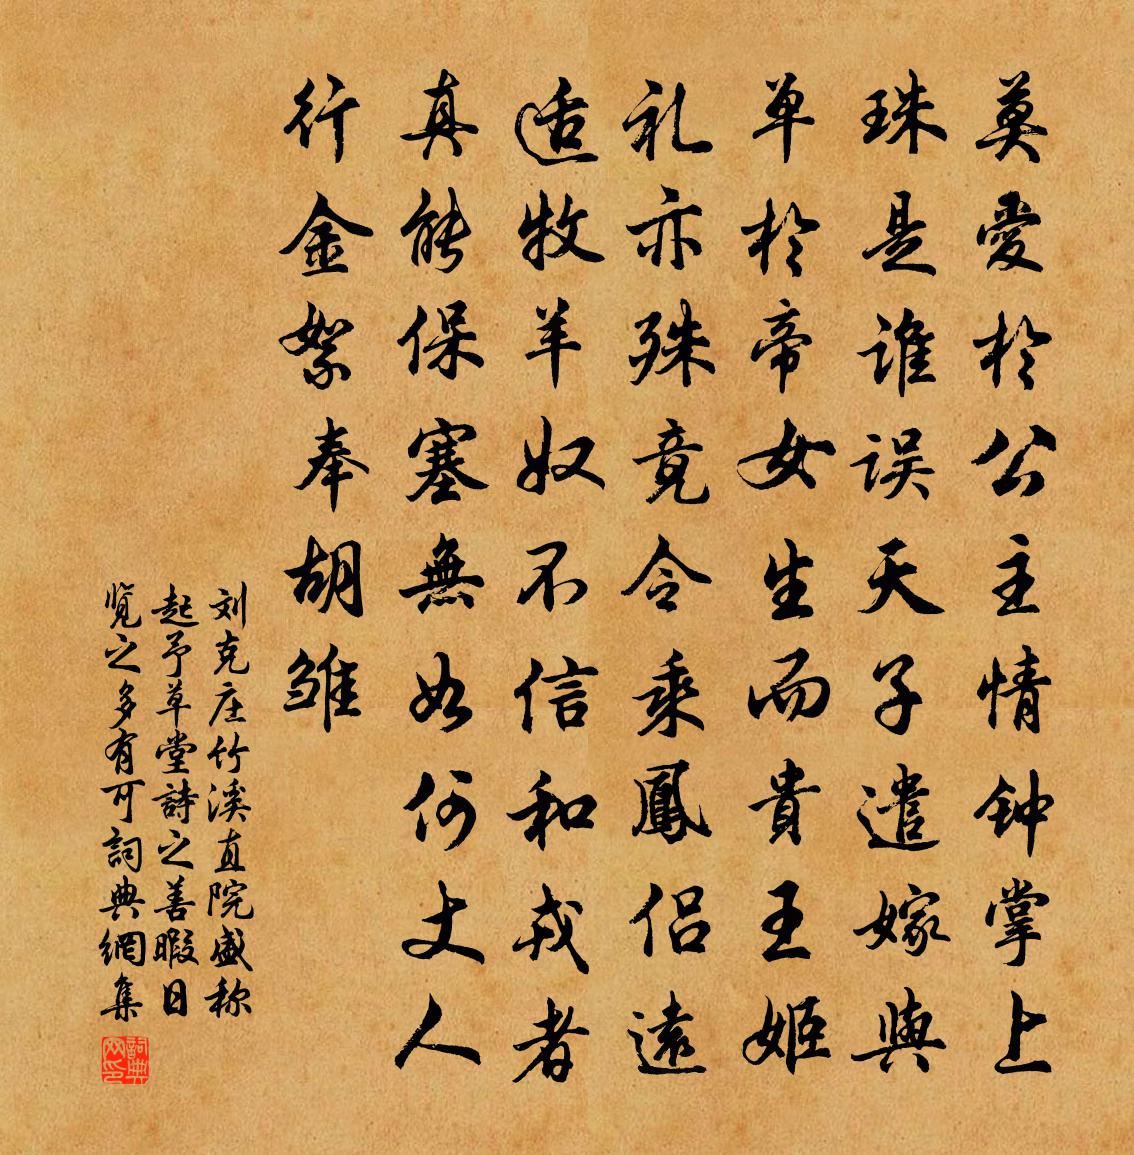 莫愛於公主情钟掌上
珠是谁误天子遣嫁與
单於帝女生而貴王姬
礼亦殊竟令乘鳳侣遠
适牧羊奴不信和戎者
真能保塞無如何丈人
行金絮奉胡雏
刘克庄竹溪直院盛称
起予草堂詩之善暇日
览之多有可詞典網集
詞典網印